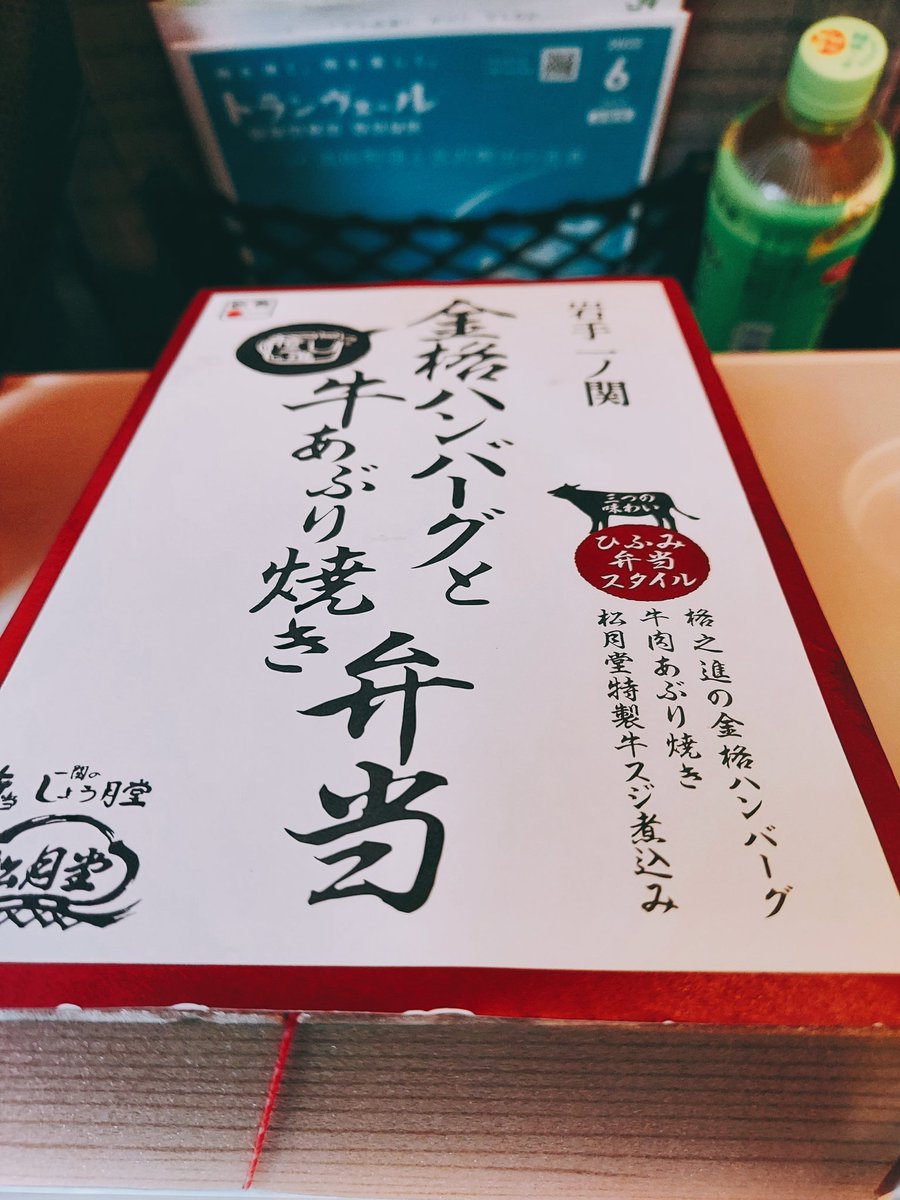 トランヴェール
2022
6
岩手一ノ関
金格ハンバーグと
牛あぶり焼き
弁当
三つの
味わい
ひふみ
弁当
スタイル
格之進の金格ハンバーグ
牛肉あぶり焼き
松月堂特製牛スジ煮込み
一関の
しょう月堂
松月堂